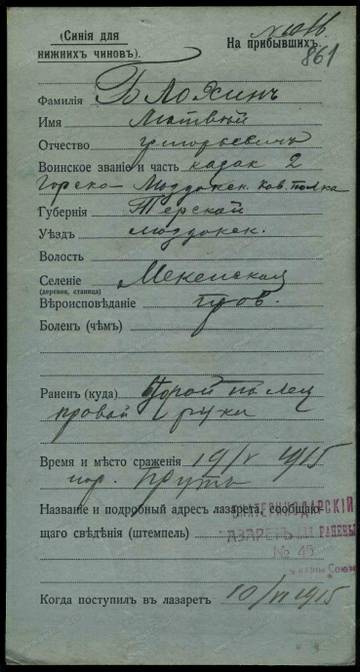 (Синія для
нижнихъ чиновъ).
На прибывшихъ.
861
Фамилія Блохинъ
Имя Матвѣй
Отчество Григорьевичъ
Воинское званіе и часть казак 2
Горско-Моздокск. кав. полка
Губернія Терской
Уѣздъ Моздокск.
Волость
Селеніе Мекенской
(деревня, станица)
Вѣроисповѣданіе прав.
Боленъ (чѣмъ)
Раненъ (куда) второй палец
правой руки
Время и мѣсто сраженія 19/V 1915
Прутъ
Названіе и подробный адресъ лазарета, сообщаю-
щаго свѣдѣнія (штемпель)
ЕКАТЕРИНОДАРСКІЙ
ЛАЗАРЕТЪ РАНЕНЫ
№ 45
Союз
Когда поступилъ въ лазаретъ 10/VI 1915